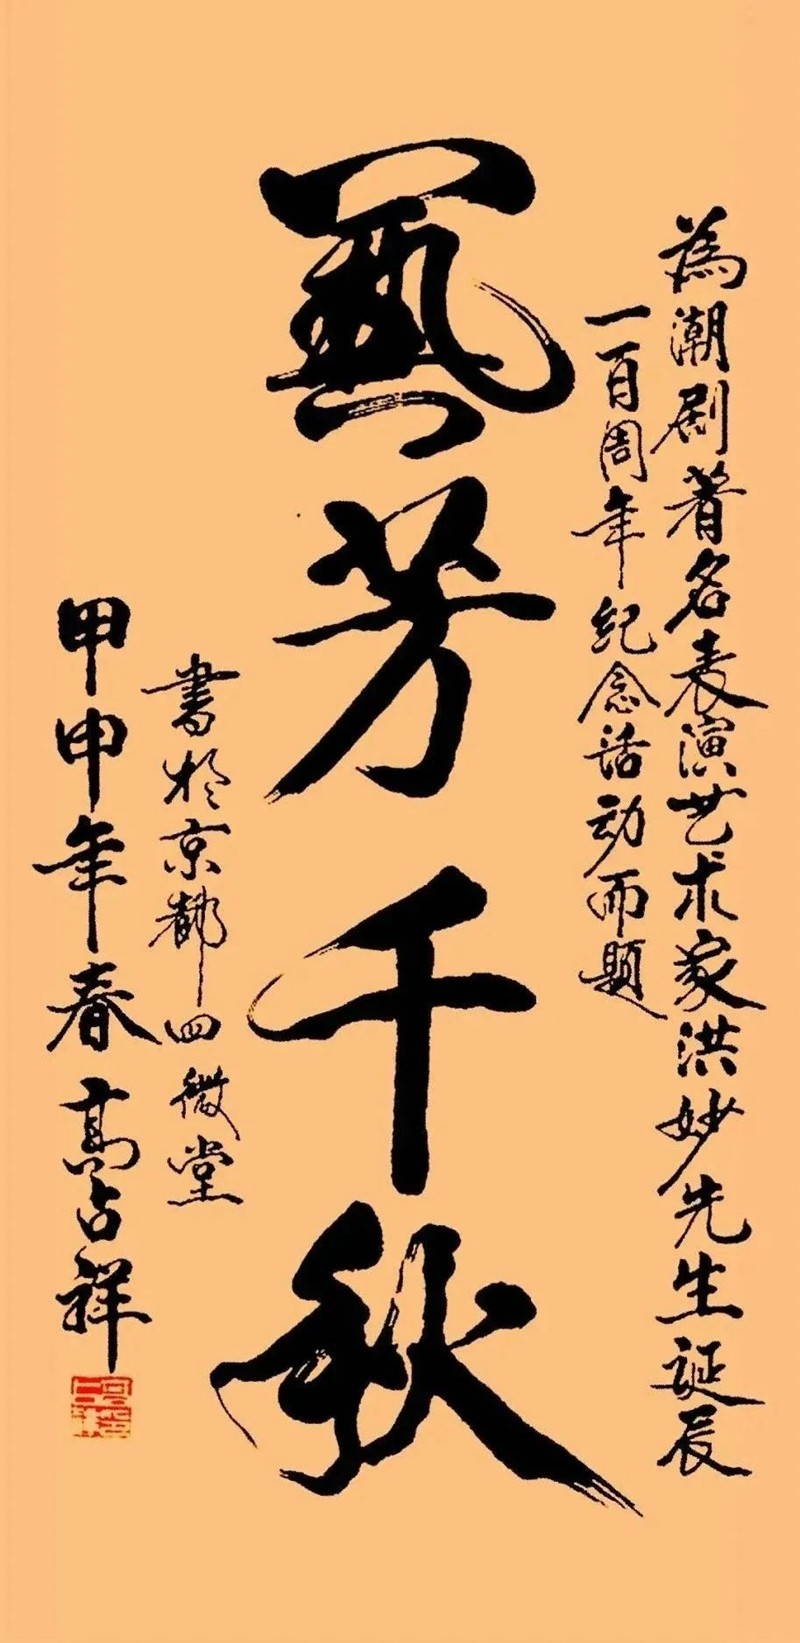 為潮剧著名表演艺术家洪妙先生誕辰
一百周年纪念活动而题
藝芳千秋
書於京都四微堂
甲申年春高占祥